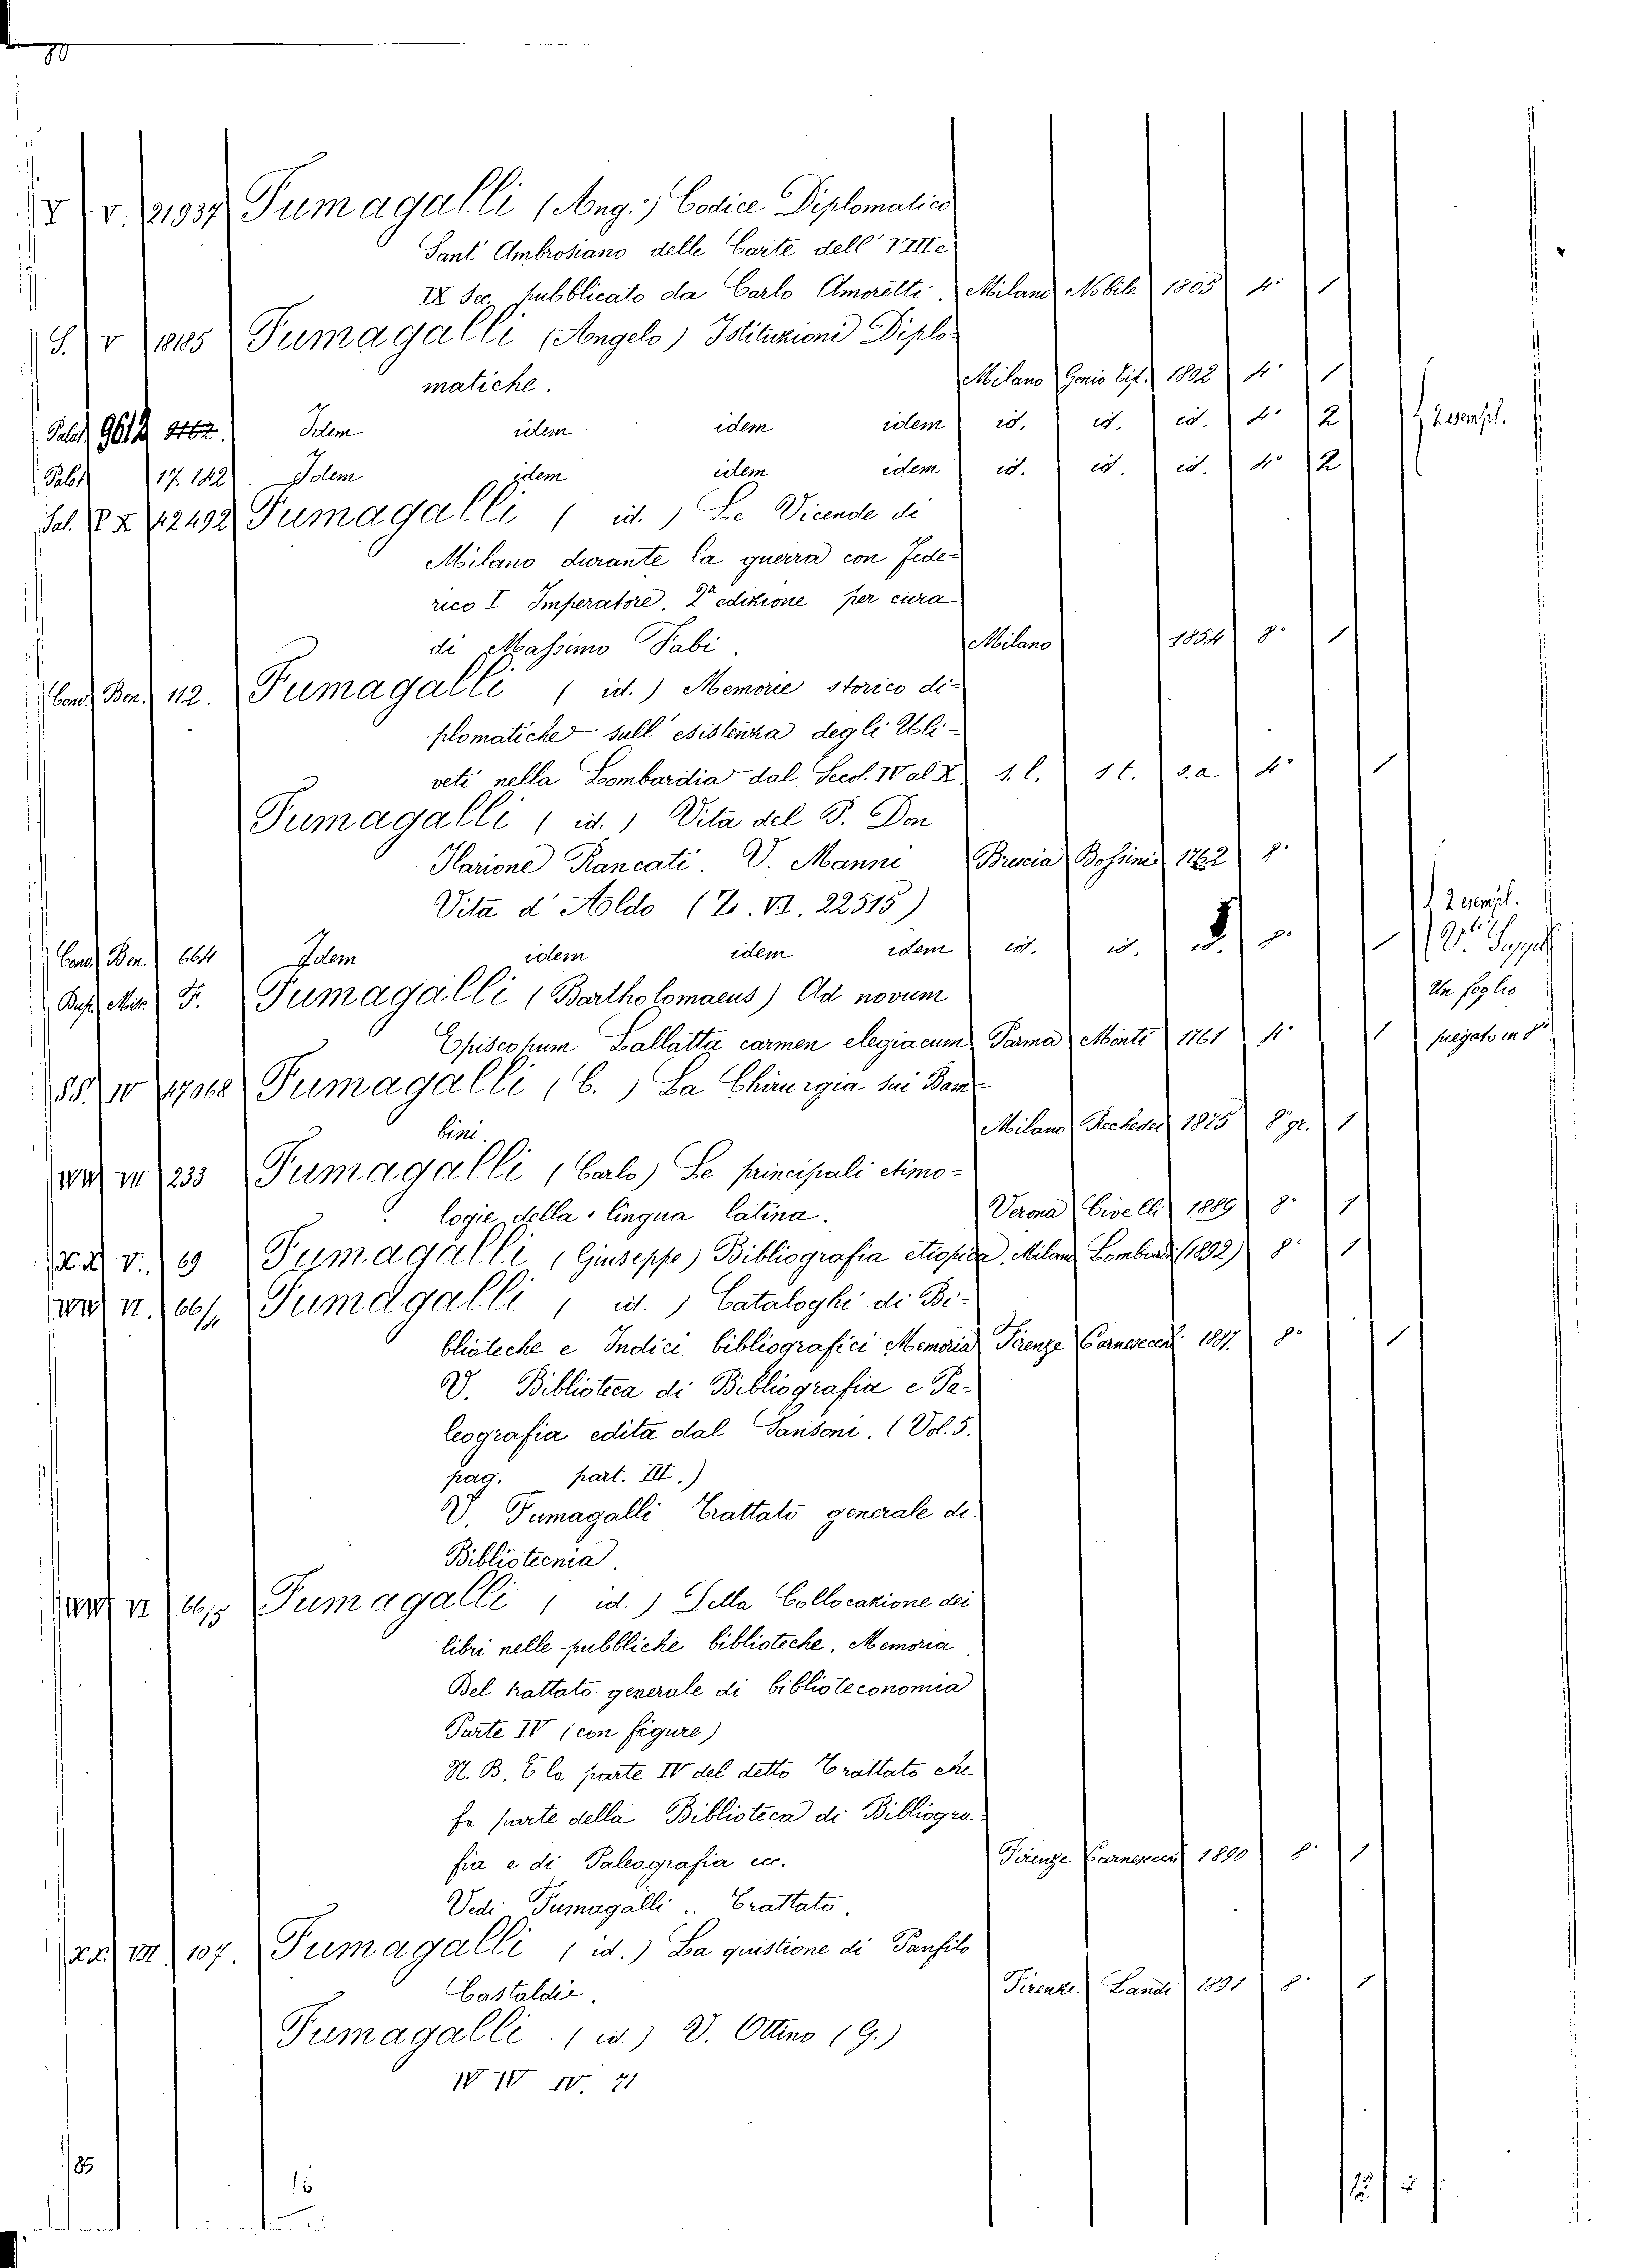 80
V v. 21937 Fumagalli (Ang.) Codice Diplomatico
Sant' Ambrosiano delle Carte dell' VIII e
IX Sec. pubblicato da Carlo Amoretti. Milano Nobile 1805 4° 1
S. V 18185 Fumagalli (Angelo) Istituzioni Diplo-
matiche. Milano Genio tip. 1802 4° 1
Palat. 9612 Idem idem idem idem id. id. id. 4° 2 2 esempl.
Palat. 17.142. Idem idem idem idem id. id. id. 4° 2
Sal. P X 12492 Fumagalli ( id. ) Le Vicende di
Milano durante la guerra con Fede-
rico I Imperatore. 2ª edizione per cura
di Massimo Fabi. Milano 1854 8° 1
Cons. Ben. 112. Fumagalli ( id. ) Memorie storico di-
plomatiche sull' esistenza degli Uli-
veti nella Lombardia dal Secol. IV al X s. l. s t. s. a. 4° 1
Fumagalli ( id. ) Vita del P. Don
Ilarione Rancati. V. Manni Brescia Bossini 1762 8°
Vita d' Aldo (Z. VI. 22515)
Cons. Ben. 664 Idem idem idem idem id. id. id. 8° 1 2 esempl.
V. Suppl.
Mis. F. Fumagalli (Bartholomaeus) Ad novum Un foglio
Episcopum Lallatta carmen elegiacum Parma Monti 1761 4° 1 piegato in 8°
SS. IV 17068 Fumagalli (C.) La Chirurgia sui Bam-
bini. Milano Rechedei 1875 8° gr. 1
VII 233 Fumagalli (Carlo) Le principali etimo-
logie della lingua latina. Verona Civelli 1889 8° 1
V. 69 Fumagalli (Giuseppe) Bibliografia etiopica. Milano Lombardi (1892) 8° 1
VI. 66/4 Fumagalli ( id. ) Cataloghi di Bi-
blioteche e Indici bibliografici Memoria Firenze Carnesecchi 1887. 8° 1
V. Biblioteca di Bibliografia e Pa-
leografia edita dal Sansoni. (Vol. 5.
pag. part. III.)
V. Fumagalli Trattato generale di
Bibliotecnia.
VI 66/5 Fumagalli ( id. ) Della Collocazione dei
libri nelle pubbliche biblioteche. Memoria.
Del trattato generale di biblioteconomia
Parte IV (con figure)
N. B. È la parte IV del detto Trattato che
fa parte della Biblioteca di Bibliogra-
fia e di Paleografia ecc. Firenze Carnesecchi 1890 8° 1
Vedi Fumagalli.. Trattato.
VIII 107. Fumagalli ( id. ) La quistione di Panfilo
Castaldi. Firenze Landi 1891 8° 1
Fumagalli. ( id. ) V. Ottino (G.)
IV. 71